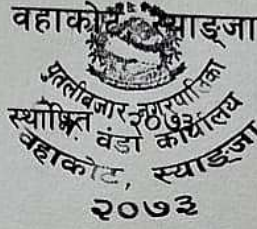 वहाकोट, स्याङ्जा
पुतलीबजार नगरपालिका
स्थापित २०७३
वडा कार्यालय
वहाकोट, स्याङ्जा
२०७३